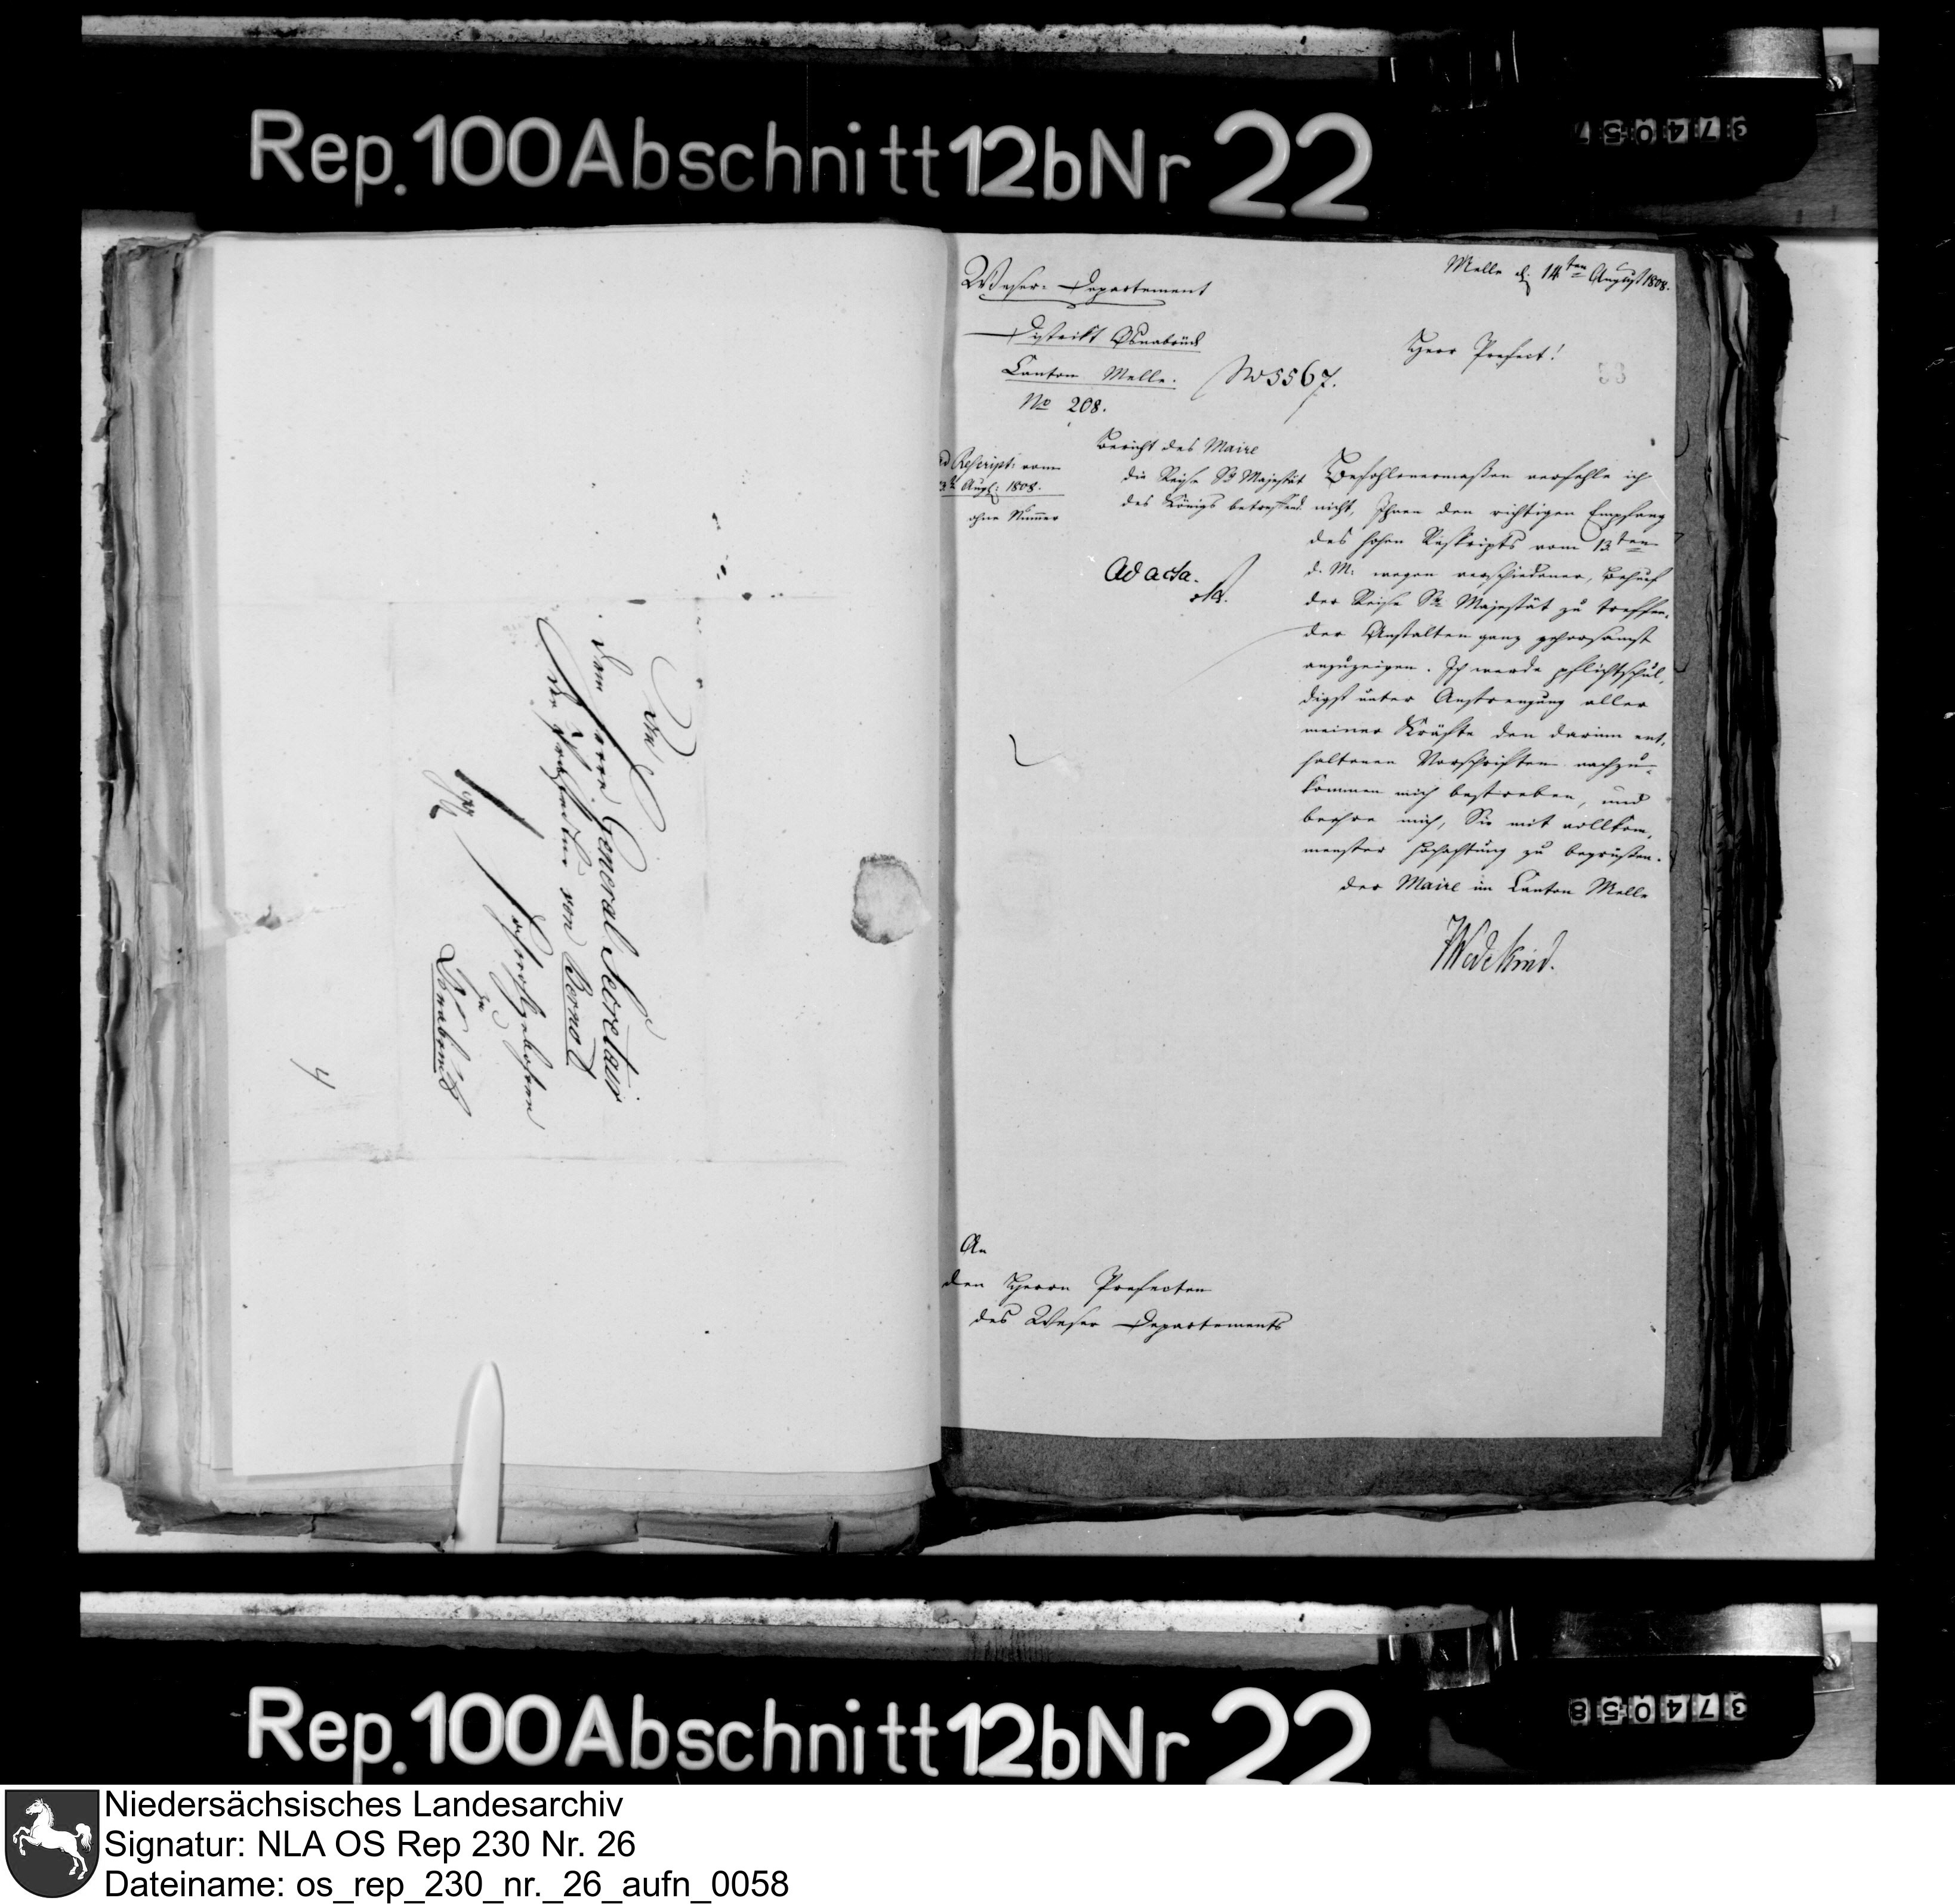 Rep. 100 Abschnitt 12b Nr 22
374057
An
dem Herrn General Secretair
der Präfectur von Bernot
Hochwohlgeboren
in
Osnabrück
4
Weser-Departement
Distrikt Osnabrück
Canton Melle.
No 208.
No 5567.
Melle d. 14ten August 1808.
Herr Prefect!
53
ad Rescript: vom
Augt: 1808.
ohne Nummer
Bericht des Maire
die Reise Sr Majestät
des Königs betreffend.
ad acta.
Befohlenermaßen verfehle ich
nicht, Ihnen den richtigen Empfang
des hohen Reskripts vom 13ten
d. M. wegen verschiedener, Behuf
der Reise Sr Majestät zu treffen-
der Anstalten ganz gehorsamst
anzuzeigen. Ich werde pflichtschul-
digst unter Anstrengung aller
meiner Kräfte den darinn ent-
haltenen Vorschriften nachzu-
kommen mich bestreben, und
beehre mich, Sie mit vollkom-
menster Hochachtung zu begrüßen.
der Maire im Canton Melle
Wedekind.
An
den Herrn Prefecten
des Weser Departements
Rep. 100 Abschnitt 12b Nr 22
374058
Niedersächsisches Landesarchiv
Signatur: NLA OS Rep 230 Nr. 26
Dateiname: os_rep_230_nr._26_aufn_0058